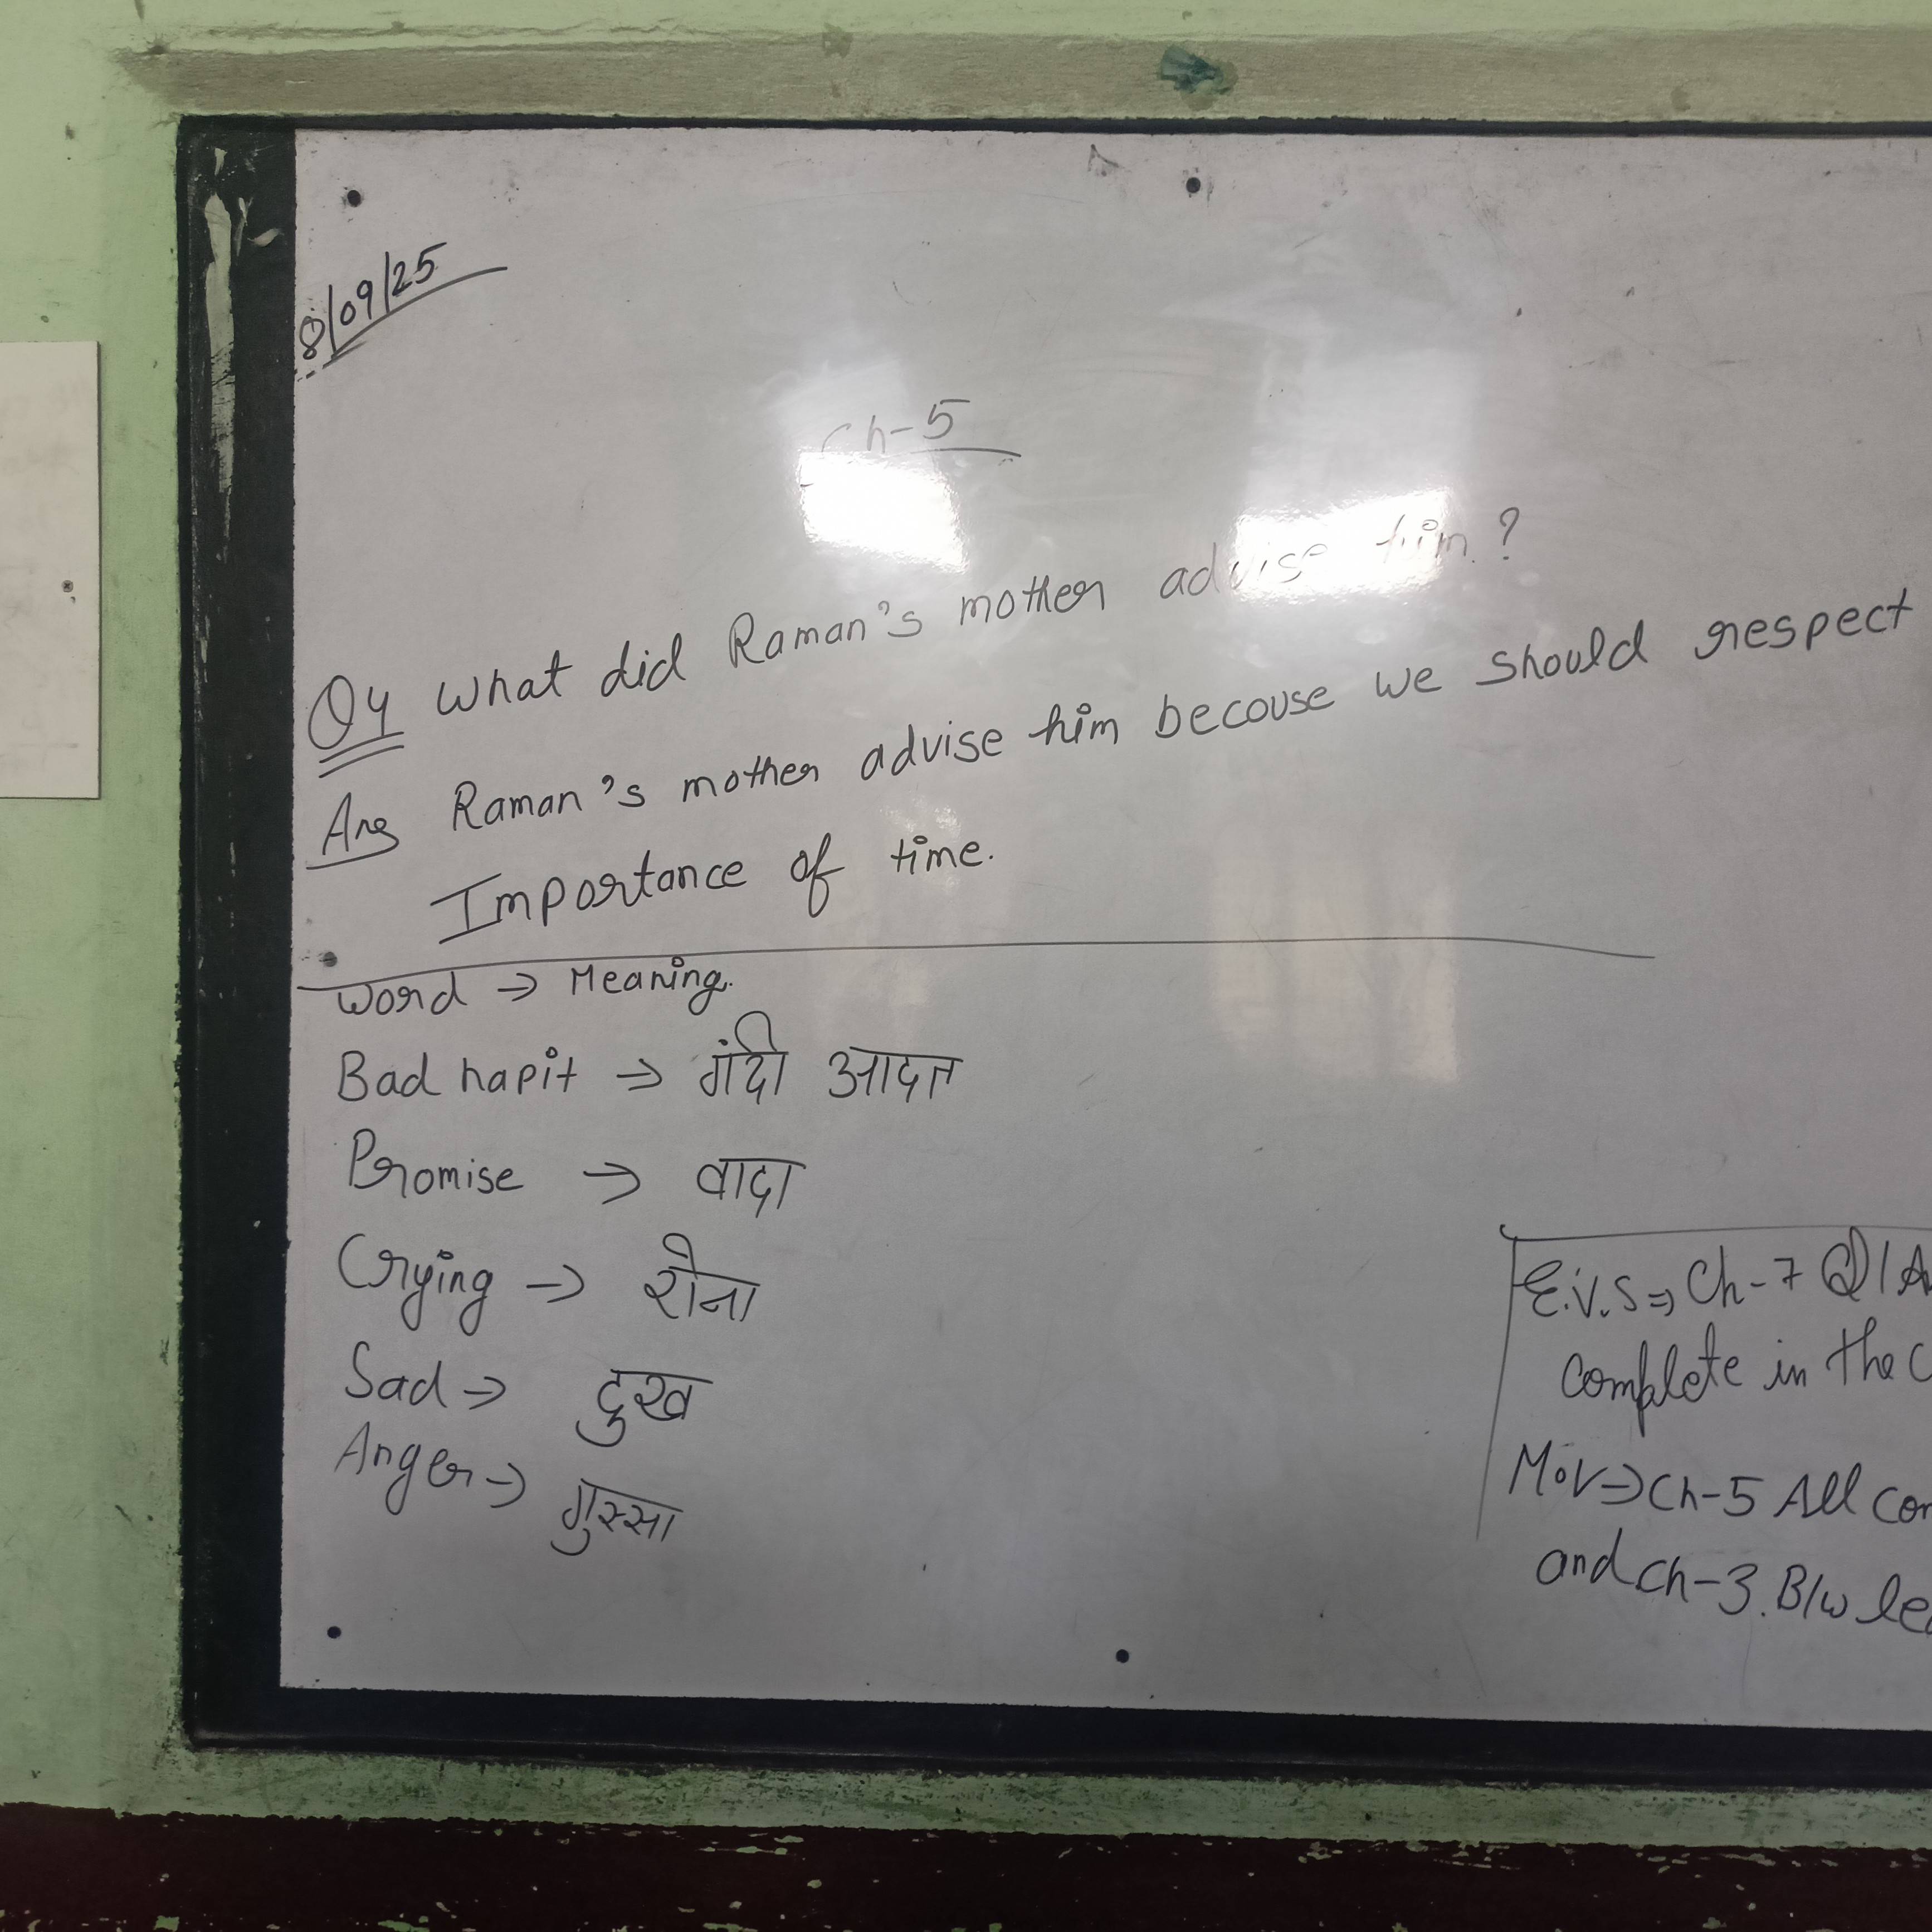 8/09/25
Ch-5
Q4 What did Raman's mother advise him?
Ans Raman's mother advise him becouse we should respect
Importance of time.
Word → Meaning.
Bad hapit → गंदी आदत
Promise → वादा
Crying → रोना
Sad → दुख
Anger → गुस्सा
E.V.S ⇒ Ch-7 Q/A
Complete in the C
M.V ⇒ Ch-5 All com
and Ch-3. B/w lea